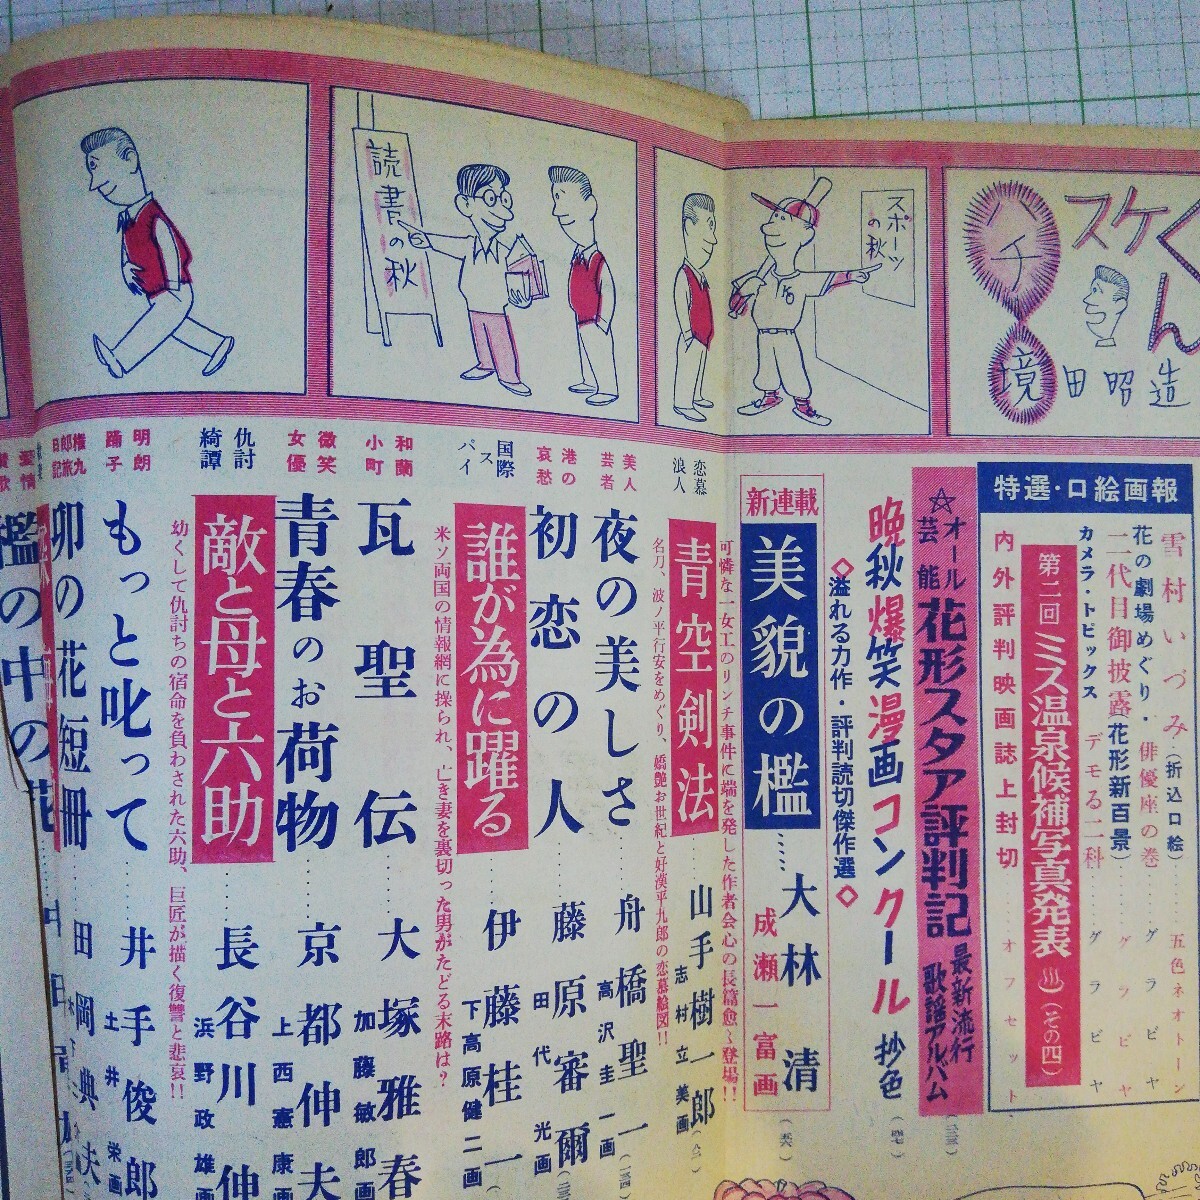 ハチスケくん
境田昭造
スポーツの秋
読書の秋
特選・口絵画報
雪村いづみ(折込口絵)
五色ネオトーン
花の劇場めぐり・俳優座の巻
グラビヤ
二代目御披露花形新百景
グラビヤ
カメラ・トピックス デモる二科
グラビヤ
第二回ミス温泉候補写真発表(その四)
内外評判映画誌上封切
オフセット
☆オール芸能花形スタア評判記
最新流行歌謡アルバム
晩秋爆笑漫画コンクール
抄色
◇溢れる力作・評判読切傑作選◇
新連載
美貌の檻
大林清
成瀬一富画
可憐な一女工のリンチ事件に端を発した作者会心の長篇愈々登場!!
恋慕浪人
青空剣法
山手樹一郎
志村立美画
名刀、波ノ平行安をめぐり、嬌艶お世紀と好漢平九郎の恋慕絵図!!
美人芸者
夜の美しさ
舟橋聖一
高沢圭一画
港の哀愁
初恋の人
藤原審爾
田代光画
国際スパイ
誰が為に躍る
伊藤桂一
下高原健二画
米ソ両国の情報網に操られ、亡き妻を裏切った男がたどる末路は?
和蘭小町
瓦聖伝
大塚雅春
加藤敏郎画
微笑女優
青春のお荷物
京都伸夫
上西憲康画
仇討綺譚
敵と母と六助
長谷川伸
浜野政雄画
幼くして仇討ちの宿命を負わされた六助、巨匠が描く復讐と悲哀!!
明朗踊子
もっと叱って
井手俊郎
土井栄画
権九郎旅日記
卯の花短冊
田岡典夫
檻の中の花